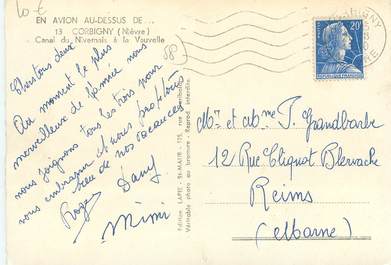 10 €
EN AVION AU-DESSUS DE...
13 CORBIGNY (Nièvre)
Canal du Nivernais à la Vauvelle
58
CORBIGNY
POSTES
20F
RÉPUBLIQUE FRANÇAISE
deux
Au moment le plus
merveilleux de l'année nous
nous joignons tous les trois pour
vous embrasser et nous profitons
bien de nos vacances
Roger
Dany
Mimi
Édition LAPIE, St-MAUR
Véritable photo au bromure - Reprod. interdite.
Mr et Mme J. Grandbarbe
12 Rue Cliquot Blervache
Reims
(Marne)